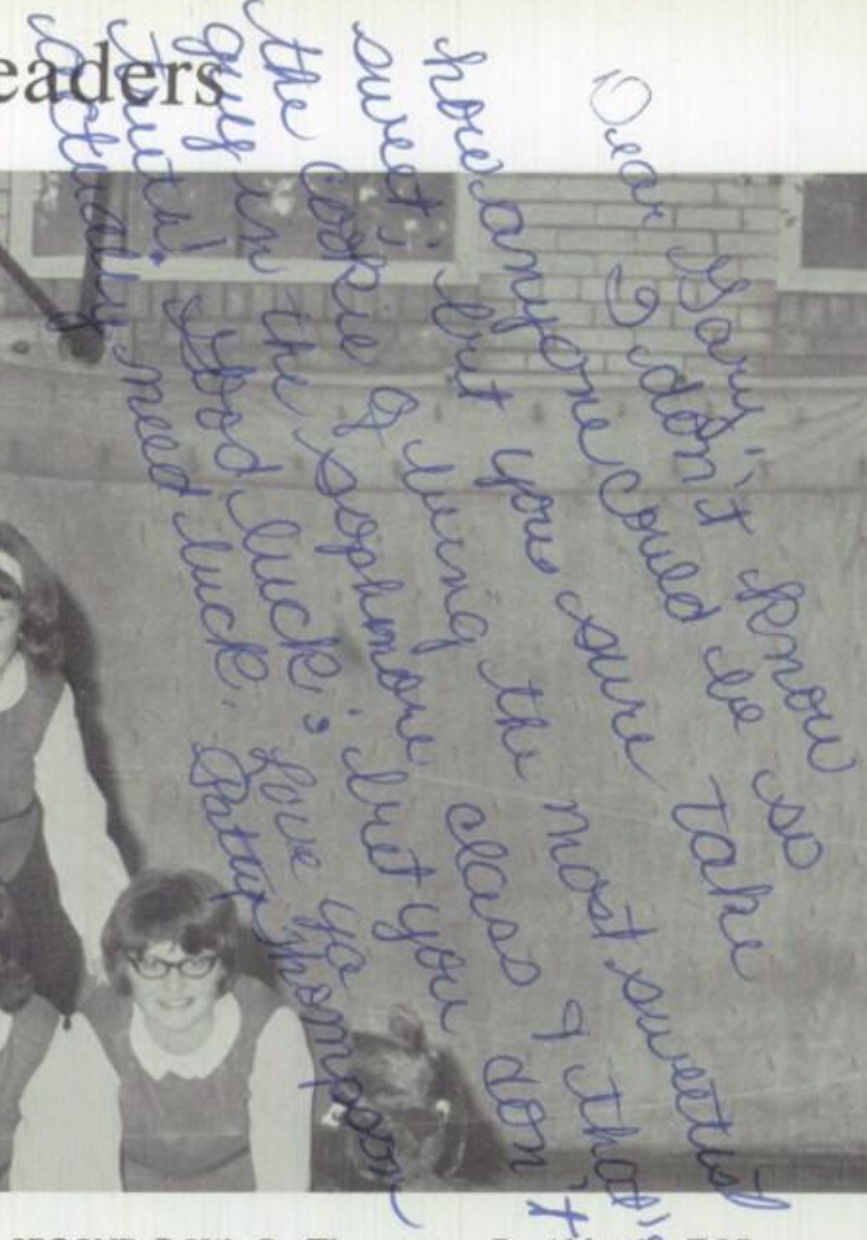 eaders
Dear Gary,
I don't know
how anyone could be so
sweet, but you sure take
the cookie of being the most sweetist
guy in the sophmore class & that's
truth! Good luck, but you don't
actually need luck.
Love ya
Patty Thompson
SECOND ROW: